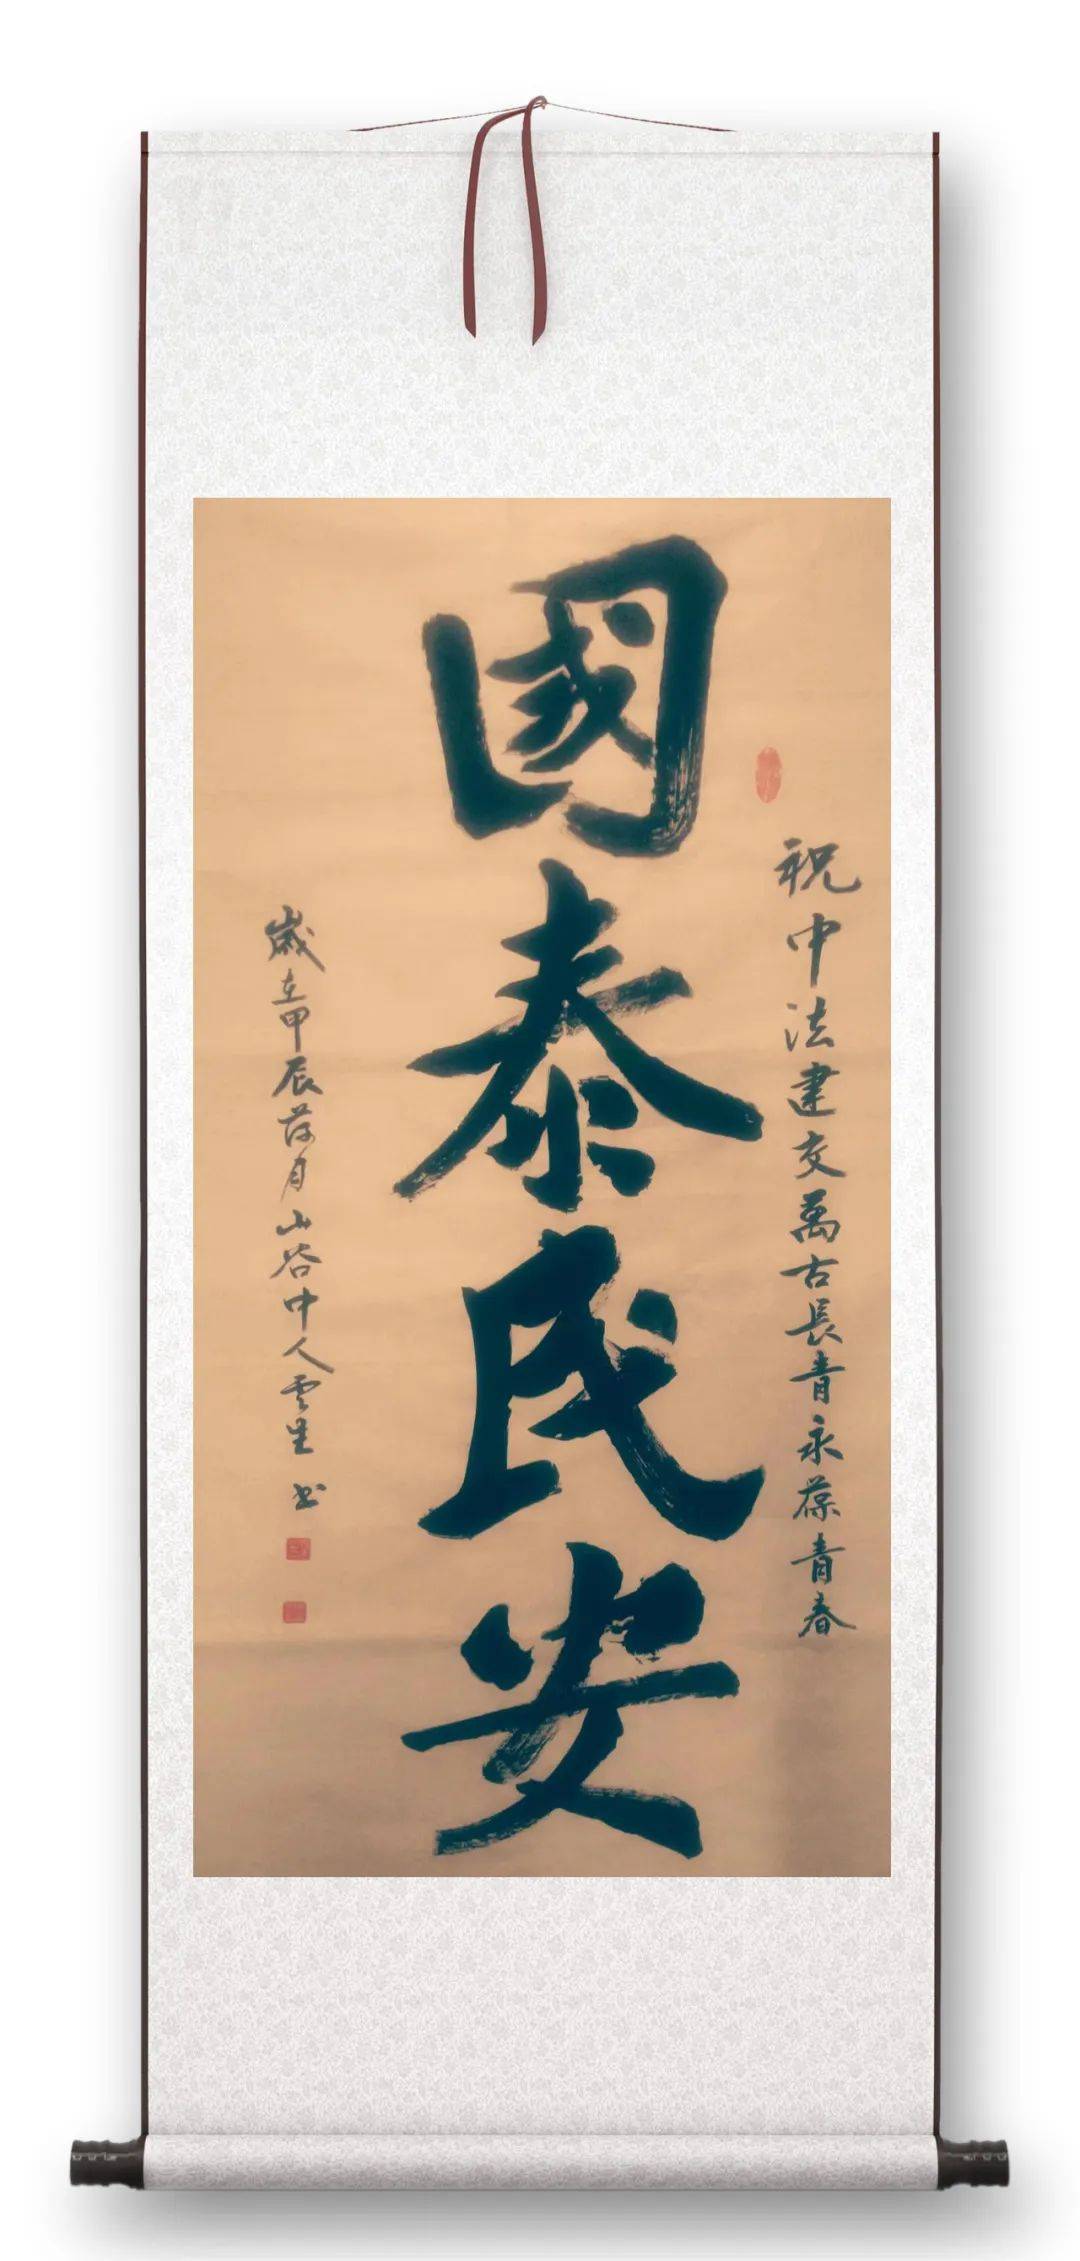 祝中法建交萬古長青永葆青春
國泰民安
歲在甲辰月山谷中人雲生书